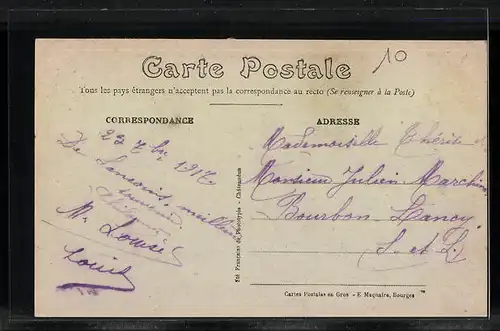 10
Carte Postale
Tous les pays étrangers n'acceptent pas la correspondance au recto (Se renseigner à la Poste)
CORRESPONDANCE
ADRESSE
23 7bre 1917
De Sancoins, meilleur
souvenir
M. Louise
Louise
Mademoiselle
Monsieur Julien
Bourbon-Lancy
S. et L.
Sté Française de Phototypie - Châteaudun
Cartes Postales en Gros - E. Maquaire, Bourges